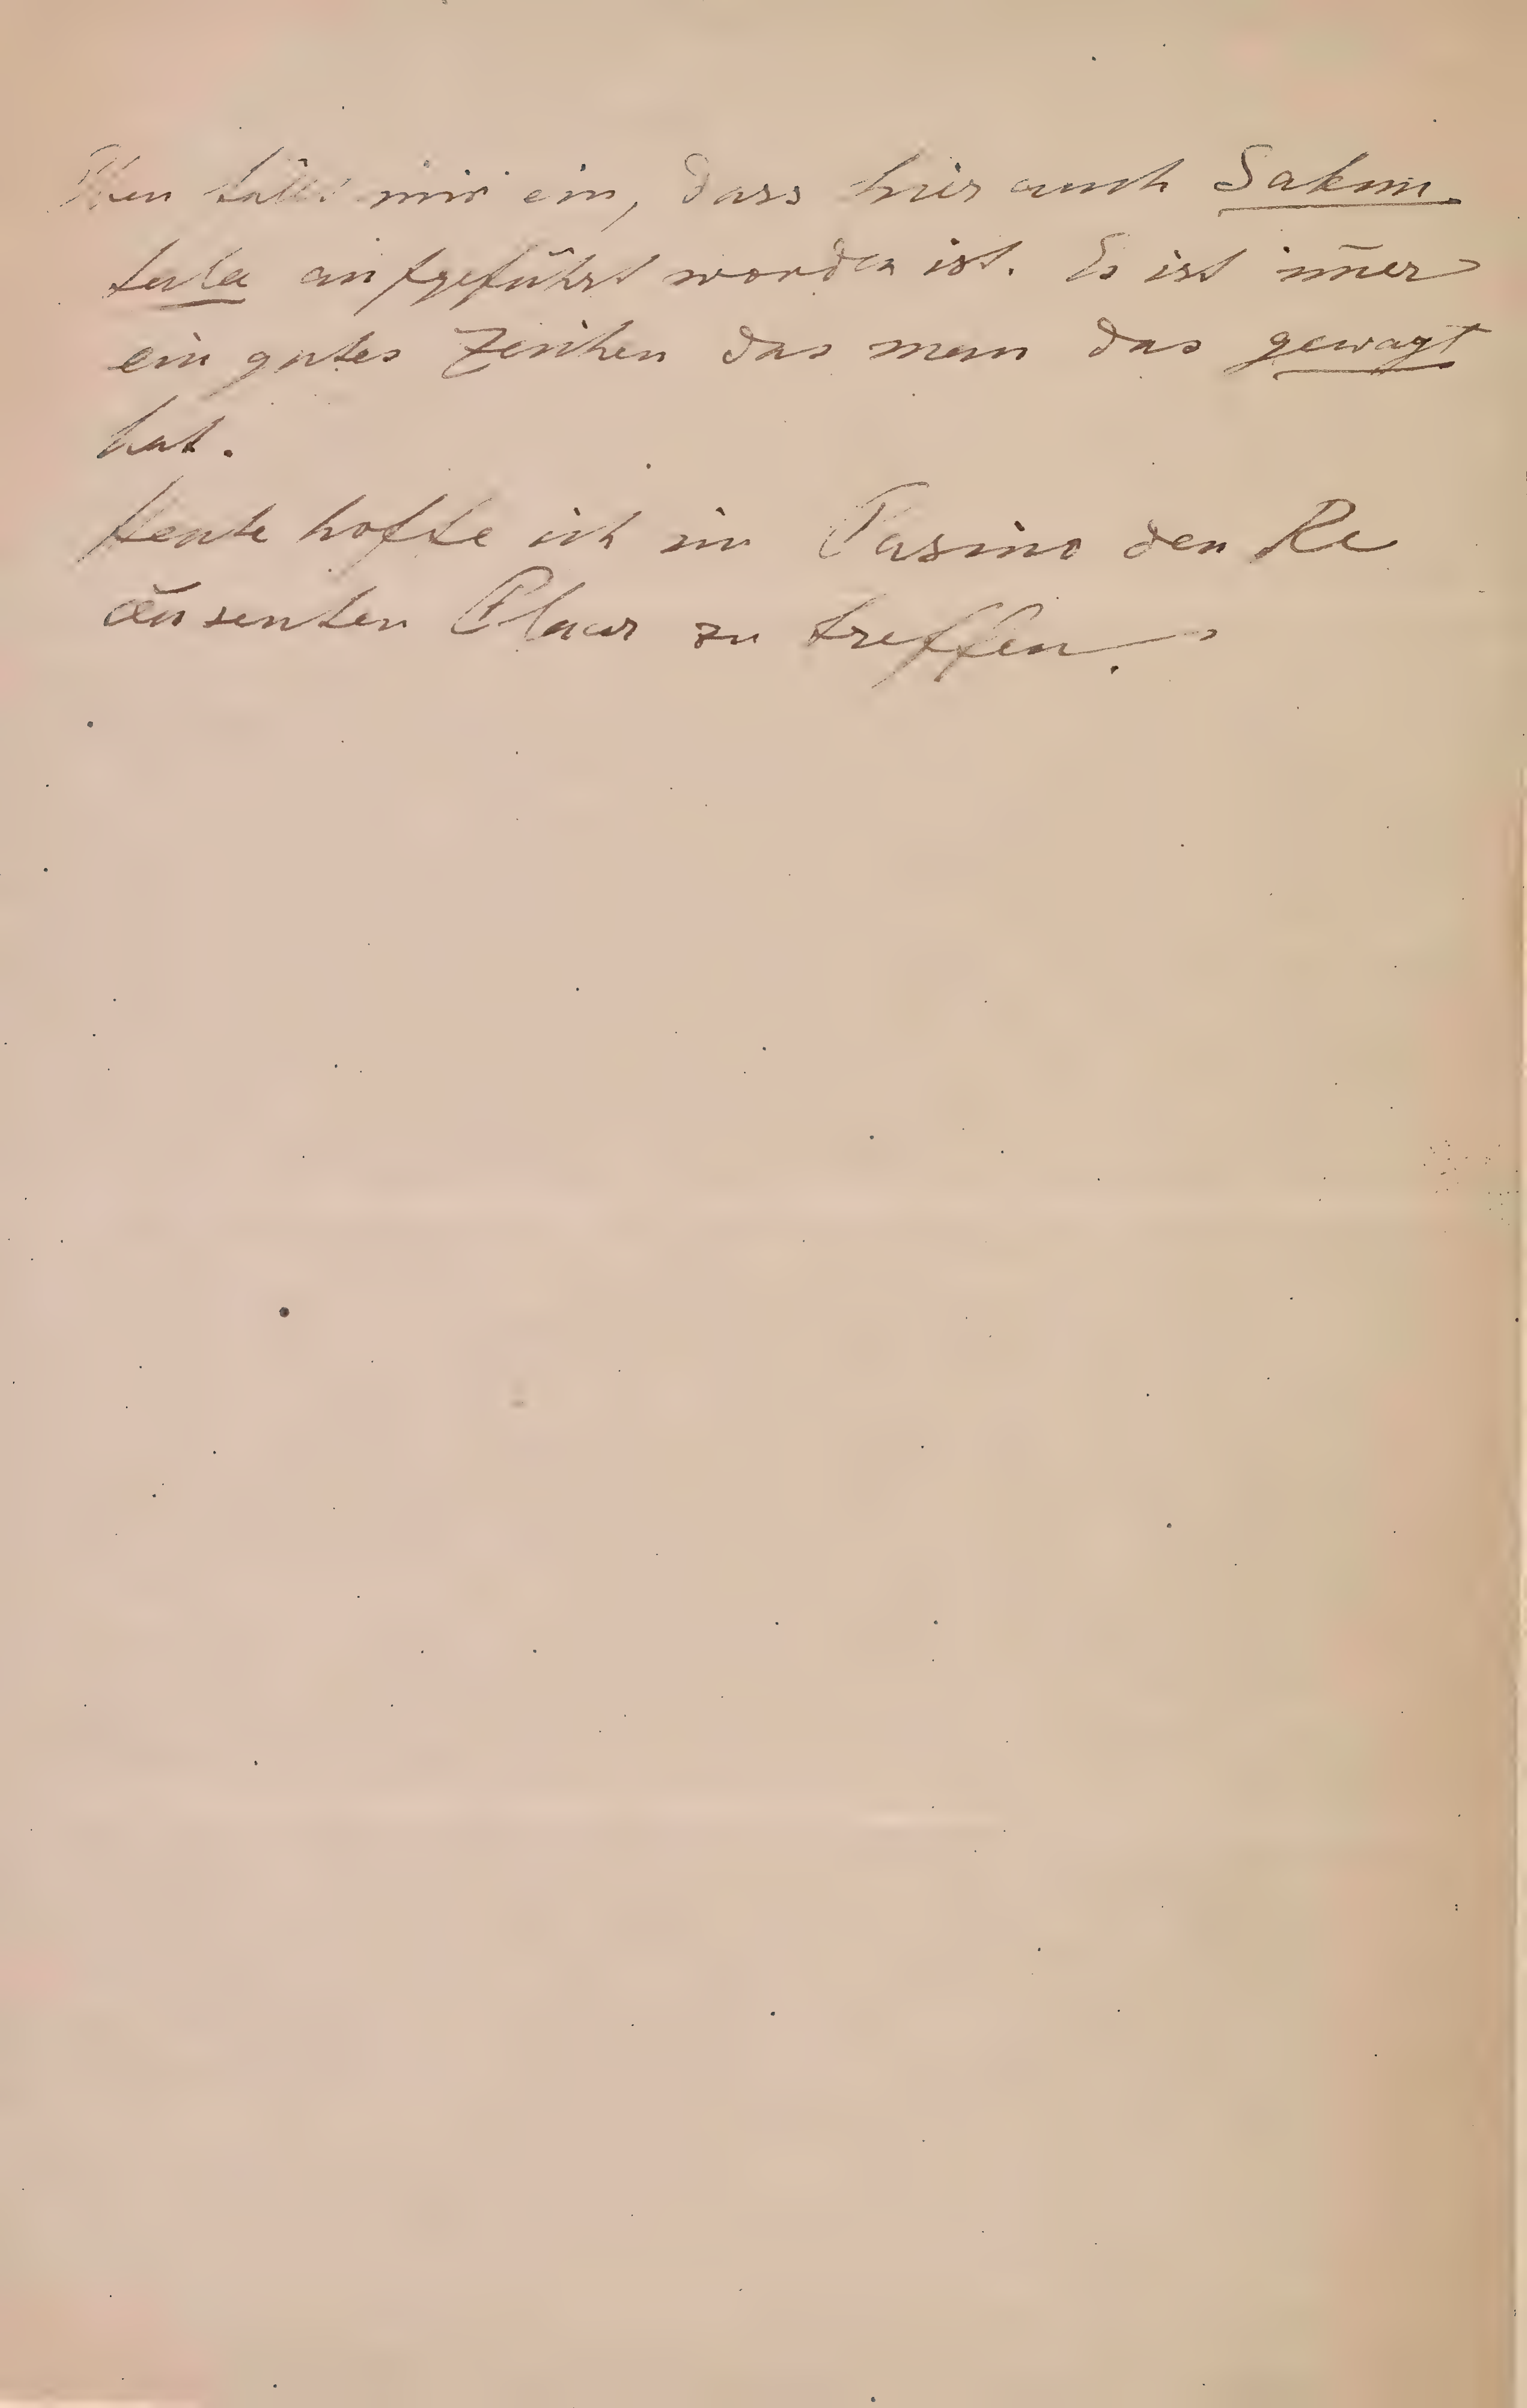 Eben fällt mir ein, dass hier auch Sakun
tala aufgeführt worden ist. Es ist im̄er
ein gutes Zeichen das man das gewagt
hat.
Heute hoffe ich im Casino den Re
censenten zu treffen.